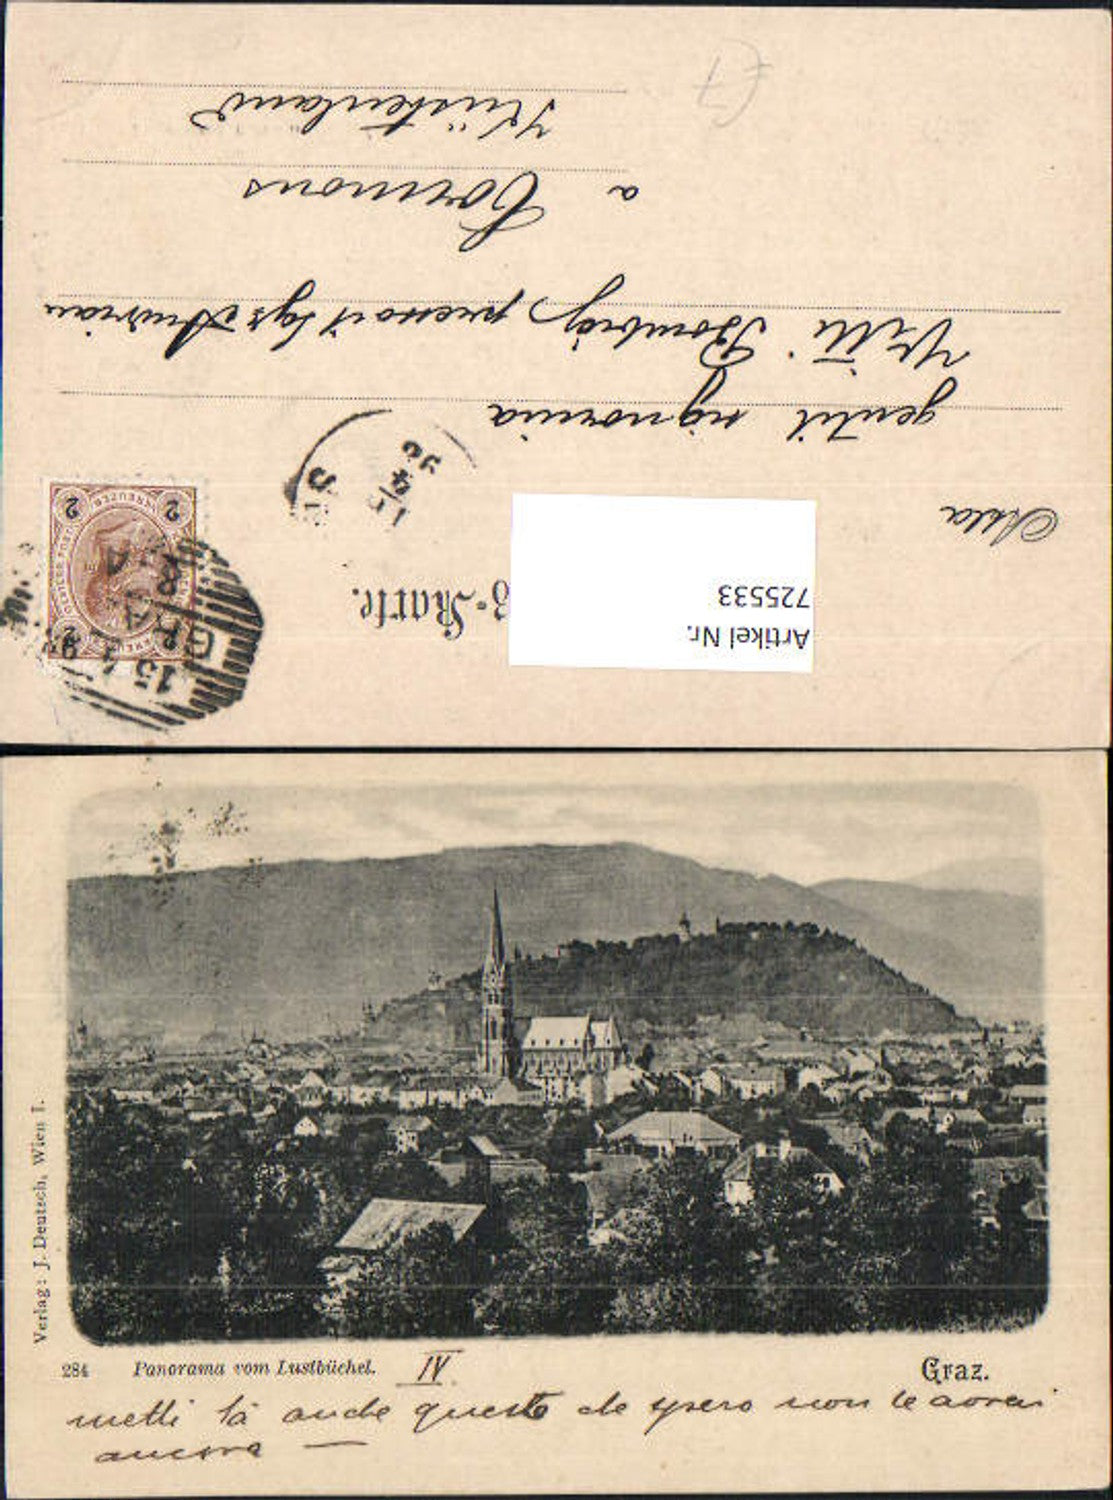 Artikel Nr.
725533
z-Karte.
Alla
gentil signorina
Villi Bombig, presso il Sigr
a Cormons
Küstenland
15
4
96
KREUZER
2
2
15
GRAZ
284 Panorama vom Lustbüchel. IV. Graz.
Verlag: J. Deutsch, Wien I.
metti là anche questo che spero non le avrai
ancora —